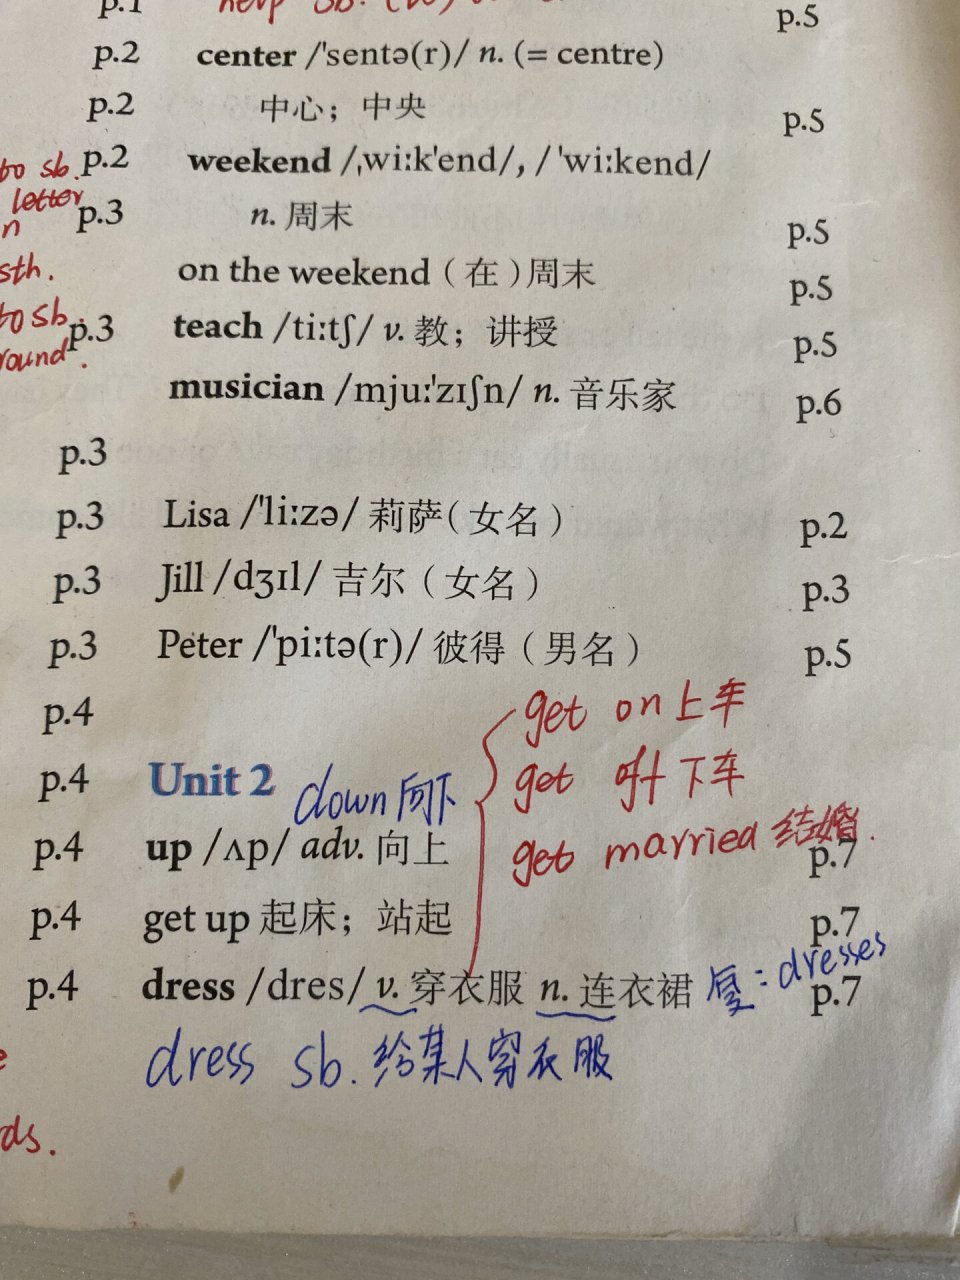 p.1
help sb.
p.5
p.2 center /'sentə(r)/ n. (= centre)
p.2 中心；中央 p.5
to sb. p.2 weekend /ˌwiːk'end/, /'wiːkend/
letter
n p.3 n. 周末 p.5
sth. on the weekend（在）周末 p.5
to sb. p.3 teach /tiːtʃ/ v. 教；讲授 p.5
round. musician /mjuː'zɪʃn/ n. 音乐家 p.6
p.3
p.3 Lisa /'liːzə/ 莉萨（女名） p.2
p.3 Jill /dʒɪl/ 吉尔（女名） p.3
p.3 Peter /'piːtə(r)/ 彼得（男名） p.5
p.4 get on 上车
p.4 Unit 2 down 向下 get off 下车
get married 结婚.
p.4 up /ʌp/ adv. 向上 p.7
p.4 get up 起床；站起 p.7
p.4 dress /dres/ v. 穿衣服 n. 连衣裙 p.7
: dresses
dress sb. 给某人穿衣服
ds.